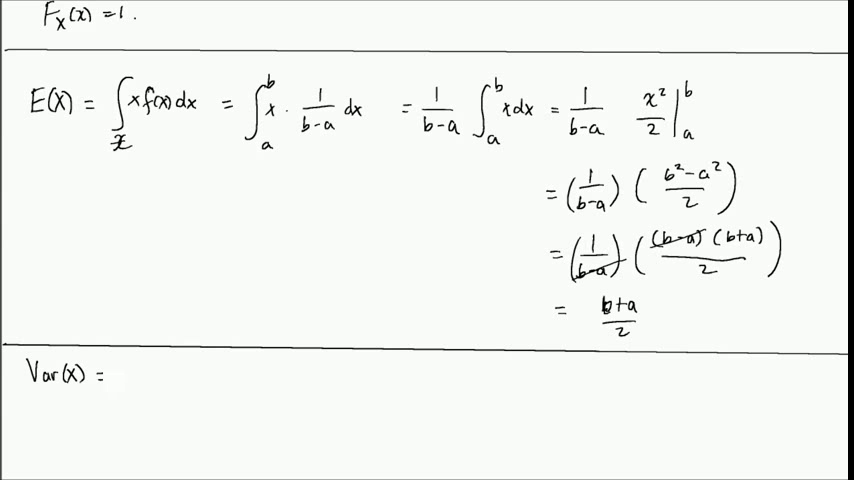 F_X(x) = 1.
E(X) = ∫_𝒳 x f(x) dx = ∫_a^b x · 1/(b-a) dx = 1/(b-a) ∫_a^b x dx = 1/(b-a) x²/2 |_a^b
= (1/(b-a)) ((b²-a²)/2)
= (1/(b-a)) ((b-a)(b+a)/2)
= (b+a)/2
Var(X) =